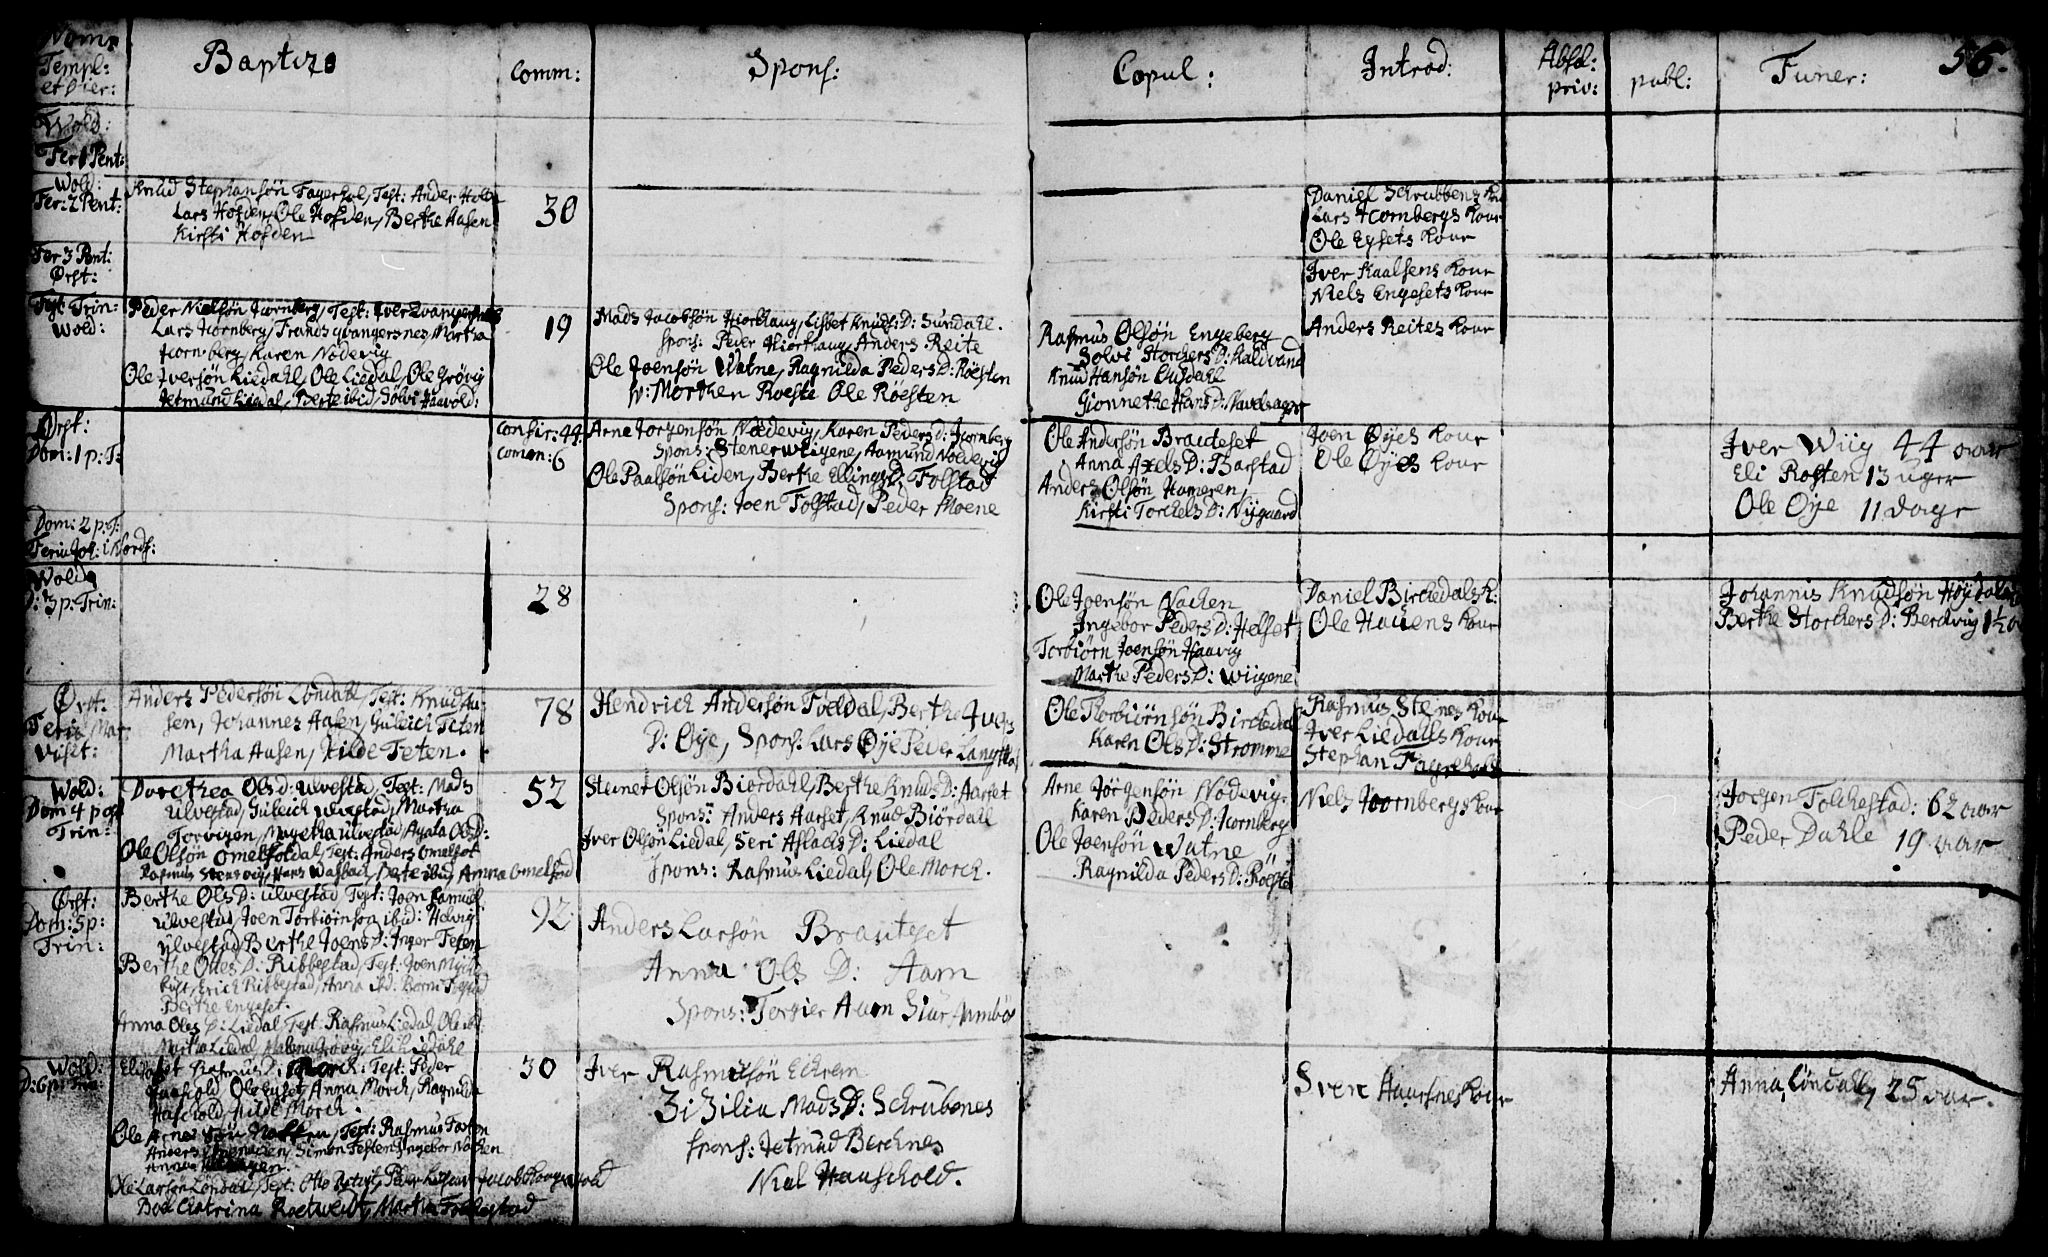 Nom:
Templ:
et Dier:
Baptiz
Comm:
Spons:
Copul:
Introd:
Absol:
priv:
publ:
Funer:
56.
Wold:
Fer 1 Pent:
Wold:
Fer: 2 Pent:
Knud Stephansøn Fagerhol, Test: Ander Holm
Lars Hofden, Ole Hofden, Berthe Aasen
Kirsti Hofden
30
Daniel Schrubbens Kou
Lars Hornbergs Kour
Ole Eysets Kour
Fer 3 Pent:
Ørst:
Iver Kaalsens Kour
Niels Engesets Kour
Fest: Trin:
Wold:
Peder Nielsøn Hornberg, Test: Iver
Lars Hornberg, Martha
Hornberg, Karen Nodevig
Ole Iversøn Liedahl, Ole Liedal, Ole Grøvig
Jetmund Liedal, Berte ibid, Solvi
19
Mads Jacobsøn Hiorthaug, Lisbet Knuds D: Sundahl.
Spons: Peder Hiorthaug, Anders Reite
Ole Joensøn Watne, Ragnilda Peders D: Røesten
sp: Morthen Roeste Ole Røesten
Rasmus Olsøn Engeberg
Solvi Storchers D: Kaldvand
Knud Hansøn
Gionnethe Hans D:
Anders Reites Kour
Ørst:
Dom: 1 p: T:
Confir: 44
Comm: 6
Arne Jorgensøn Nodevig, Karen Peders D: Hornberg
Spons: Stener Wiigene, Aamund Nodevig
Ole Paalsøn Liden, Berthe Ellings D: Folstad
Spons: Joen Folstad, Peder Moene
Ole Andersøn Brauteset
Anna Axels D: Barstad
Anders Olsøn Hameren,
Kirsti Torchels D: Nygaard
Joen Øyes Kour
Ole Øyes Kour
Iver Wiig 44 aar
Eli Rosten 13 uger
Ole Øye 11 dage
Dom: 2 p: T:
Feria Joh: i Kiords:
Wold:
D: 3 p: Trin:
28
Ole Joensøn Nachen
Ingebor Peders D: Helset
Torbiørn Joensøn Haavig
Marthe Peders D: Wiigene
Daniel Birchedals K:
Ole Hauens Kour
Johannis Knudsøn
Berthe Storchers D: Berdvig 1½
Ørst:
Feria Mar:
Visit:
Anders Pedersøn Løndahl, Test: Knud Aa-
sen, Johannes Aasen, Guleich Teten
Martha Aasen, Hilde Teten.
78
Hendrich Andersøn Foeldal, Berthe Ivers
D: Øye, Spons: Lars Øye Peder
Ole Thorbiørnsøn Birchedal
Karen Ols D: Stromme
Rasmus Stenes Kour
Iver Liedahls Kour
Stephan Fagerhols
Wold:
Dom 4 post
Trin:
Dorethea Ols D: Ulvestad, Test: Mads
Ulvestad, Guleich Ulvestad, Martha
Torvigen, Magetha Ulvestad, Ols D:
Ole Olsøn Omelfotdal, Test: Anders Omelfot
Rasmus Berte ibid, Anna Omelfot
52
Steiner Olsøn Biordahl, Berthe Knuds D: Aarset
Spons: Anders Aarset, Knud Biørdahl
Iver Olsøn Liedal, Seri Aslachs D: Liedal
Spons: Rasmus Liedal, Ole Morch.
Arne Jørgensøn Nodevig.
Karen Peders D: Hornberg
Ole Joensøn Watne
Ragnilda Peders D: Røeste
Niels Hornbergs Kour
Jorgen Folchestad: 62 aar
Peder Dahle 19 aar
Ørst:
Dom: 5 p:
Trin:
Berthe Ols D: Ulvestad Test: Joen Samuel
Ulvestad Joen Torbiørnson ibid: Helvig
Ulvestad, Berthe Joens D: Inger Teten
Berthe Ottes D: Ribbestad, Test: Joen Mykle
bust, Erich Ribbestad, Anna ibd:
Berthe Engeset.
Anna Oles D: Liedal, Test: Rasmus Liedal, Ole ibd:
Martha Liedal, Malena Grøvig, Eli Liedahl
92
Anders Larsøn Brauteset
Anna Ols D: Aam
Spons: Torgier Aam Siur Ambø
Wold:
D: 6 p: Trin:
Elisabet Rasmus D: Morch: Test: Peder
Haschold, Ole Eyset, Anna Morch, Ragnilda
Haschold, Hilde Morch.
Ole Arnes søn Nakken, Test: Rasmus
Anders Simon Ingebor Nachen
Anna
Ole Larsøn Løndal, Test: Peder
Boel Catrina Martha Folchestad
30
Iver Rasmusøn Echrem
Zi Zilia Mads D: Schrubenes
Spons: Jetmud Berchnes
Niel Hauschold.
Sver Haasnes Kour
Anna Løndahl, 25 aar.